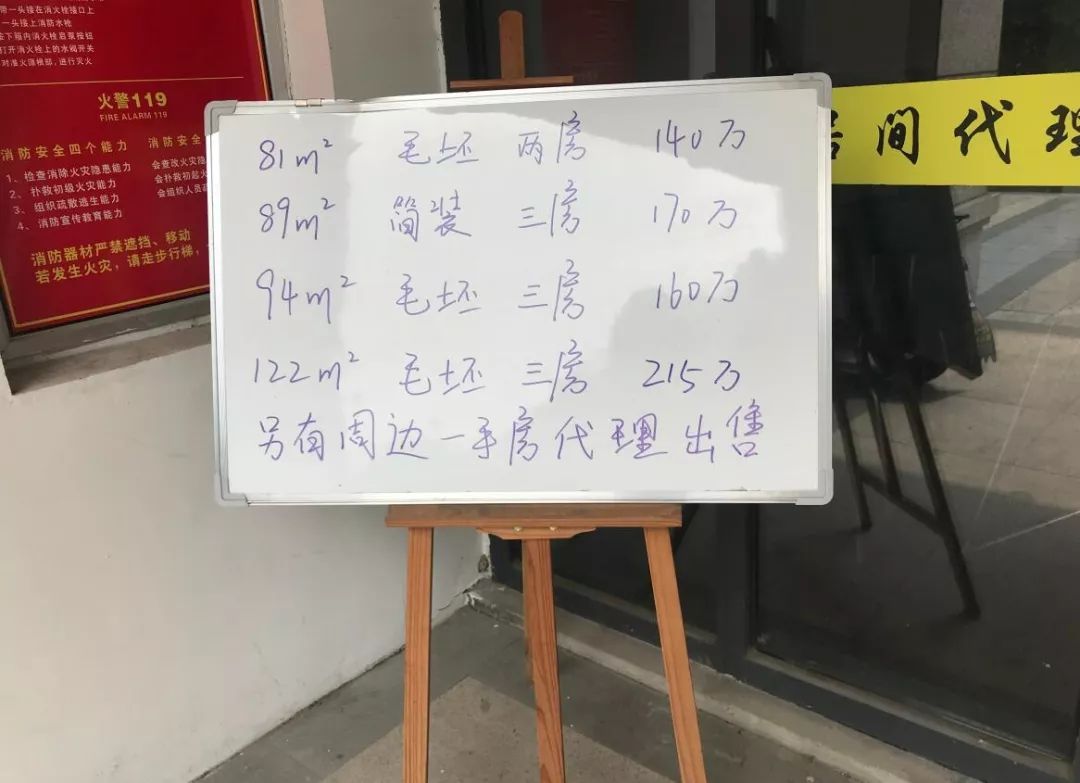 带一头接在消火栓接口上
一头接上消防水枪
按下箱内消火栓启泵按钮
打开消火栓上的水阀开关
对准火源根部,进行灭火
火警119
FIRE ALARM 119
消防安全四个能力
1、检查消除火灾隐患能力
2、扑救初级火灾能力
3、组织疏散逃生能力
4、消防宣传教育能力
消防安全
会查改火灾隐
会扑救初起火
会组织人员疏
消防器材严禁遮挡、移动
若发生火灾,请走步行梯,
81m² 毛坯 两房 140万
89m² 简装 三房 170万
94m² 毛坯 三房 160万
122m² 毛坯 三房 215万
另有周边一手房代理出售
居间代理